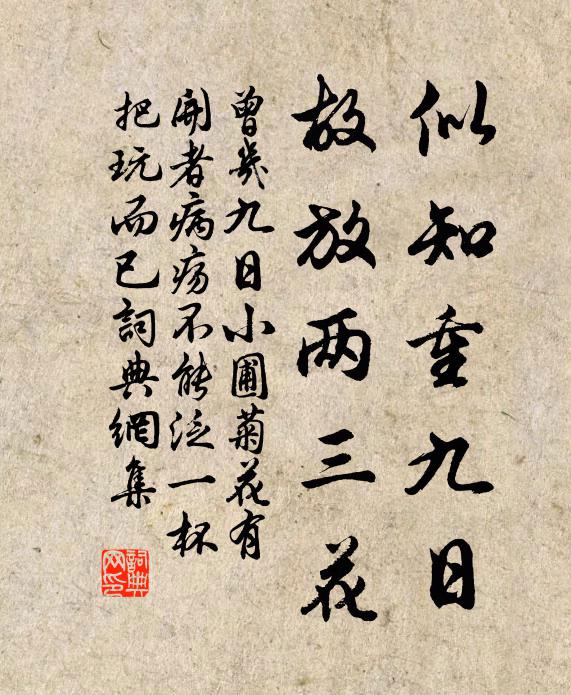 似知重九日
故放两三花
曾幾九日小圃菊花有
開者病瘍不能泛一杯
把玩而已詞典網集
詞典
网印